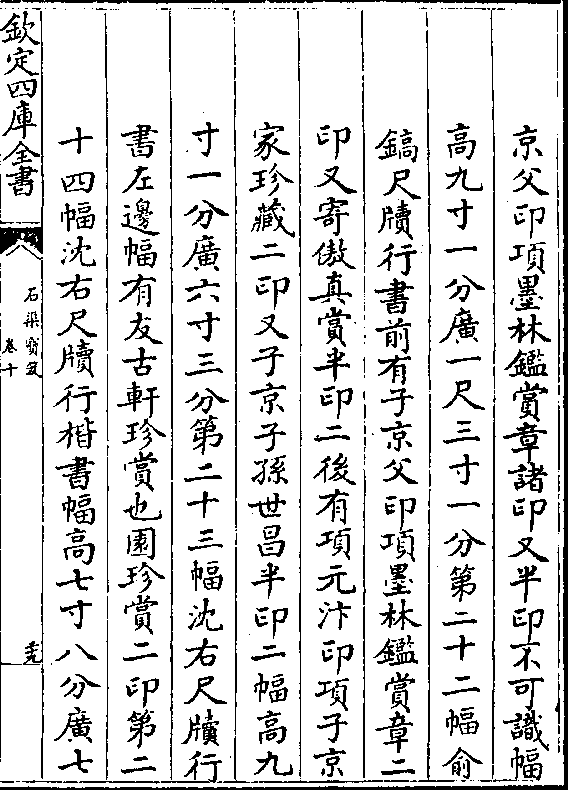 京父印項墨林鑑賞章諸印又半印不可識幅
高九寸一分廣一尺三寸一分第二十二幅俞
鎬尺牘行書前有子京父印項墨林鑑賞章二
印又寄傲真賞半印二後有項元汴印項子京
家珍藏二印又子京子孫世昌半印二幅高九
寸一分廣六寸三分第二十三幅沈右尺牘行
書左邊幅有友古軒珍賞也園珍賞二印第二
十四幅沈右尺牘行楷書幅高七寸八分廣七
欽定四庫全書
石渠寶笈
卷十